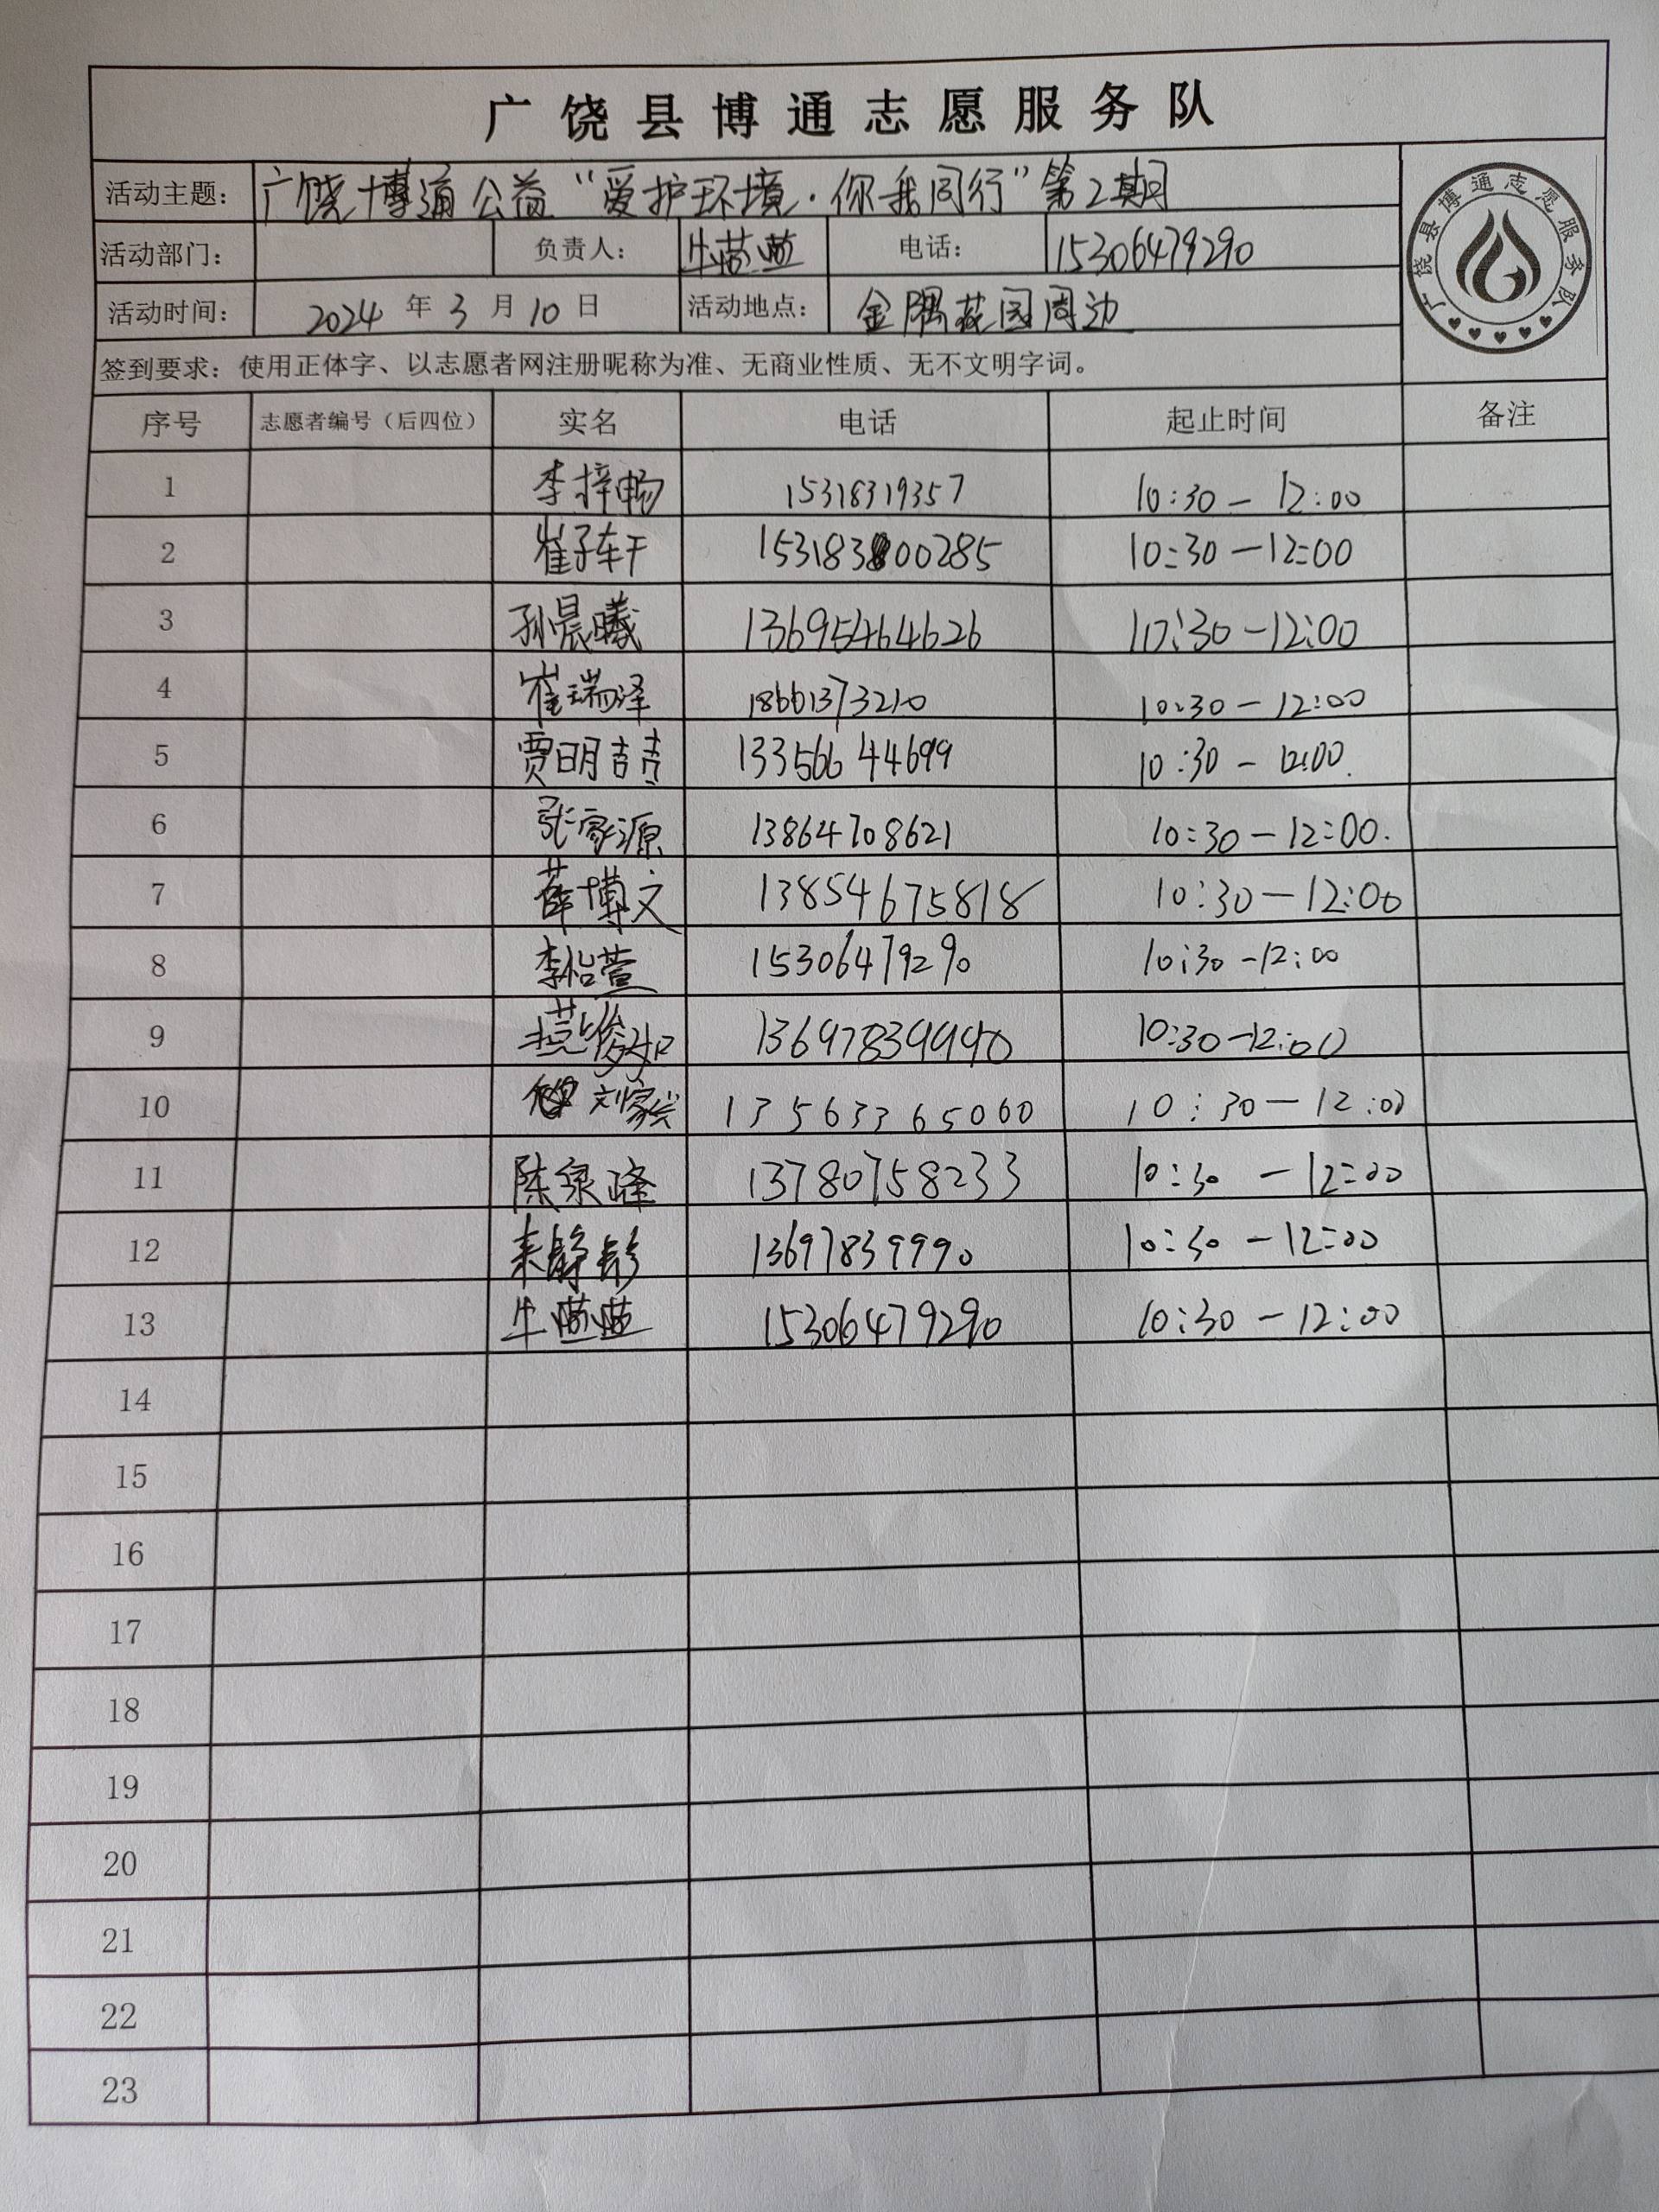 广饶县博通志愿服务队
活动主题： 广饶博通公益“爱护环境·你我同行”第2期
活动部门： 负责人： 牛喆喆 电话： 15306479290
活动时间： 2024 年 3 月 10 日 活动地点： 金隅花园周边
广饶县博通志愿服务队
签到要求：使用正体字、以志愿者网注册昵称为准、无商业性质、无不文明字词。
序号 志愿者编号（后四位） 实名 电话 起止时间 备注
1 李梓畅 15318319357 10:30－12:00
2 崔子轩 15318300285 10:30－12:00
3 孙晨曦 13695464626 10:30－12:00
4 崔瑞泽 18661373210 10:30－12:00
5 贾明喆 13356644699 10:30－12:00.
6 张家源 13864708621 10:30－12:00.
7 薛博文 13854675818 10:30－12:00
8 李怡萱 15306479290 10:30－12:00
9 13697839990 10:30－12:00
10 刘家 13563365060 10:30－12:00
11 陈泉峰 13780758233 10:30－12:00
12 静 13697839990 10:30－12:00
13 牛 15306479290 10:30－12:00
14
15
16
17
18
19
20
21
22
23